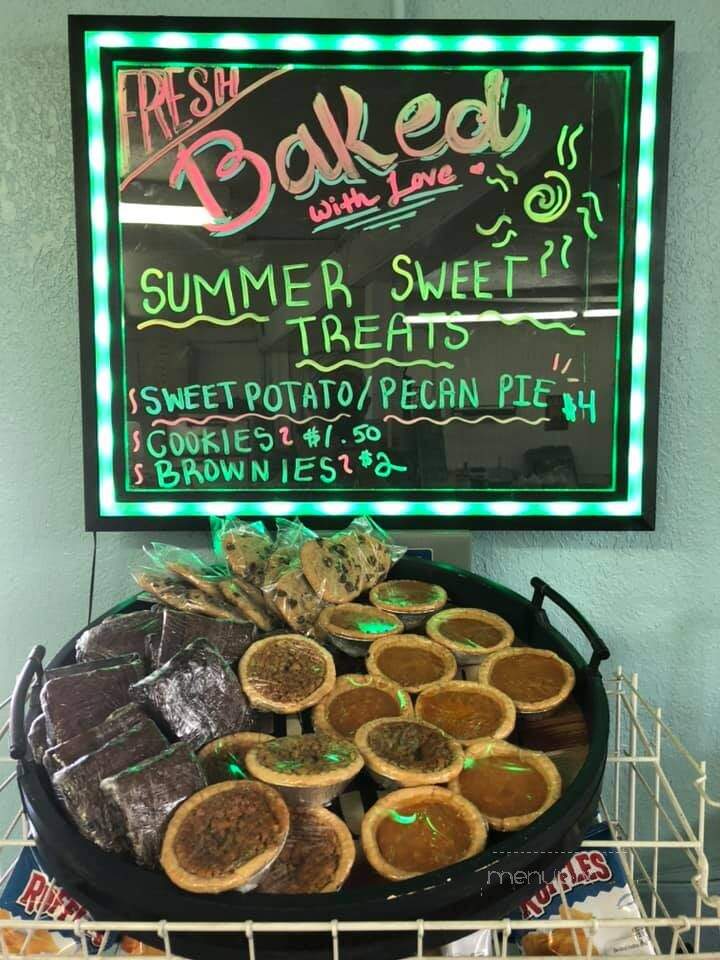 FRESH
Baked
with Love
SUMMER SWEET
TREATS
SWEET POTATO/PECAN PIE $4
COOKIES $1.50
BROWNIES $2